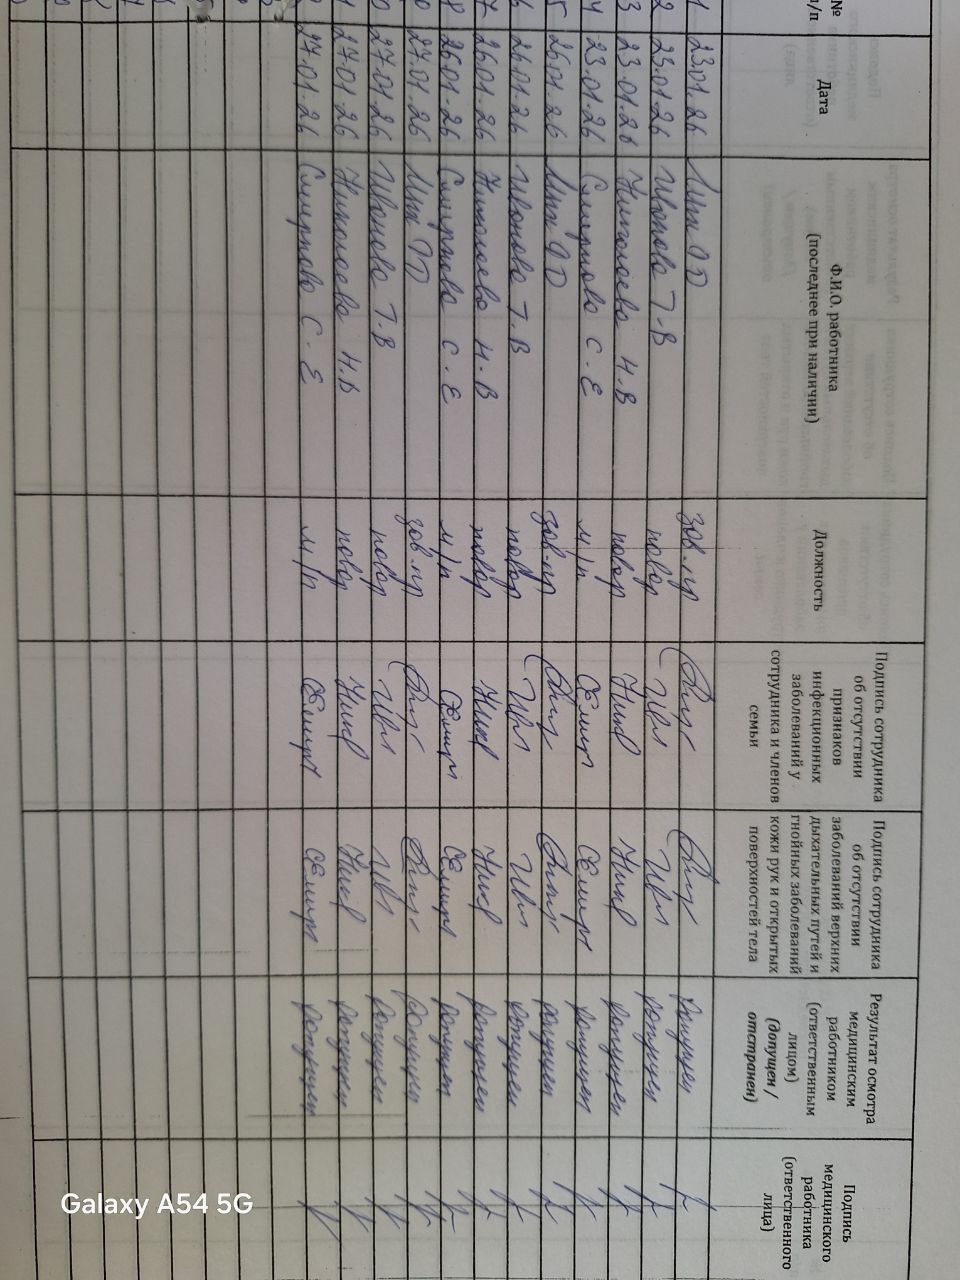 № п/п
Дата
Ф.И.О. работника
(последнее при наличии)
Должность
Подпись сотрудника
об отсутствии
признаков
инфекционных
заболеваний у
сотрудника и членов
семьи
Подпись сотрудника
об отсутствии
заболеваний верхних
дыхательных путей и
гнойных заболеваний
кожи рук и открытых
поверхностей тела
Результат осмотра
медицинским
работником
(ответственным
лицом)
(допущен /
отстранен)
Подпись
медицинского
работника
(ответственного
лица)
1 23.01.26 зав.пр допущен
2 23.01.26 Иванова Т.В повар допущен
3 23.01.26 Николаева Н.В повар допущен
4 23.01.26 Смирнова С.Е м/п допущен
5 26.01.26 зав.пр допущен
6 26.01.26 Иванова Т.В повар допущен
7 26.01.26 Николаева Н.В повар допущен
8 26.01.26 Смирнова С.Е м/п допущен
27.01.26 зав.пр допущен
27.01.26 Иванова Т.В повар допущен
27.01.26 Николаева Н.В повар допущен
27.01.26 Смирнова С.Е м/п допущен
Galaxy A54 5G